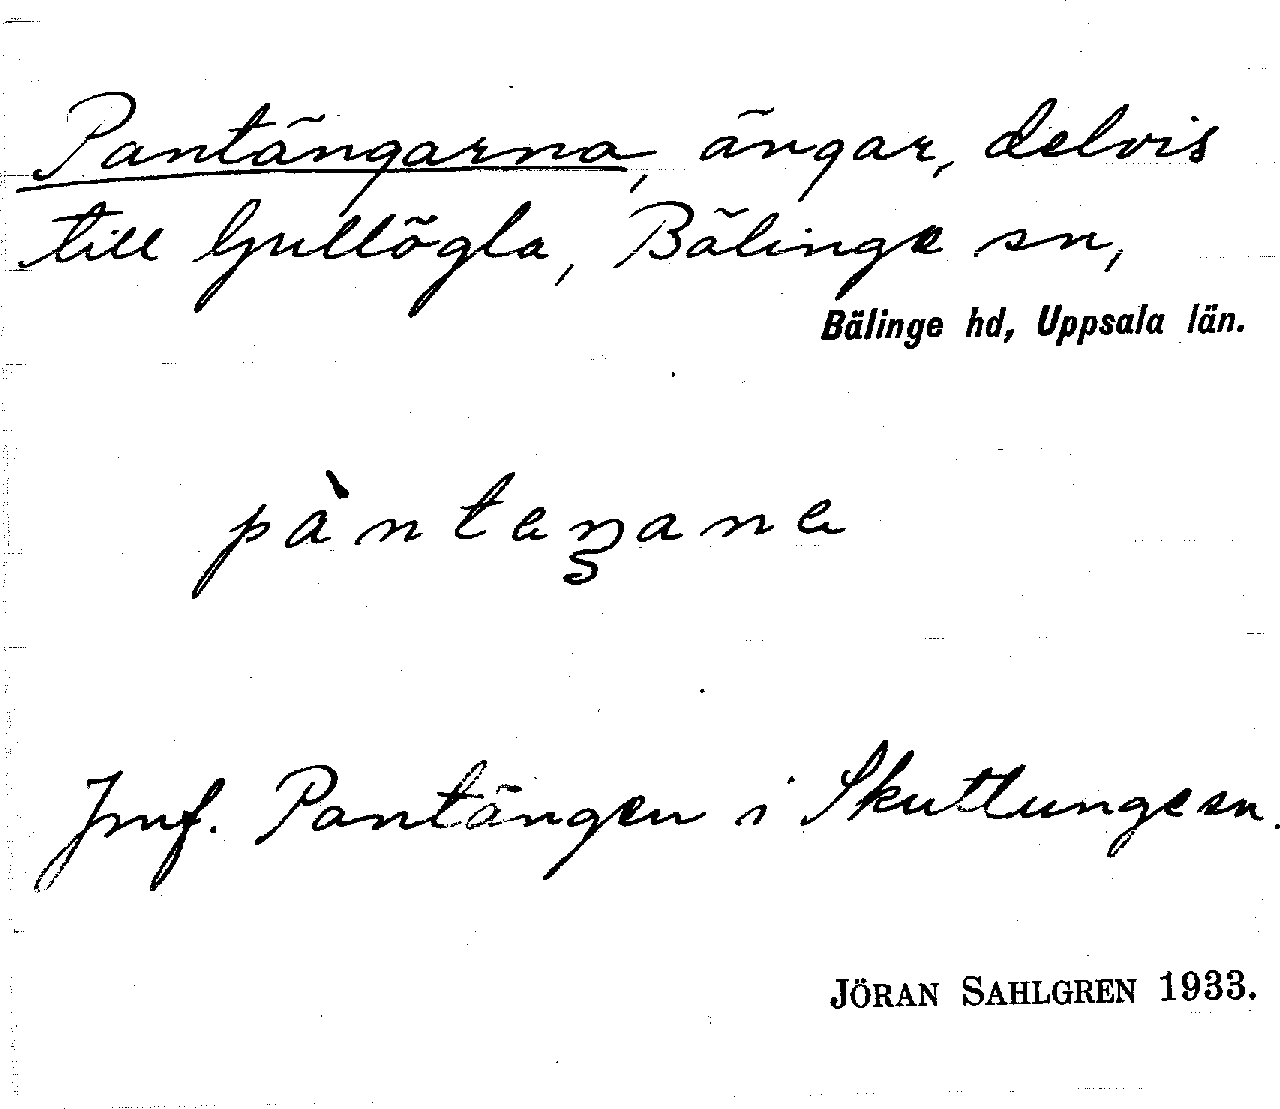 Pantängarna, ängar, delvis
till Gullögla, Bälinge sn,
Bälinge hd, Uppsala län.
pàntaŋana
Jmf. Pantängen i Skuttunge sn.
JÖRAN SAHLGREN 1933.